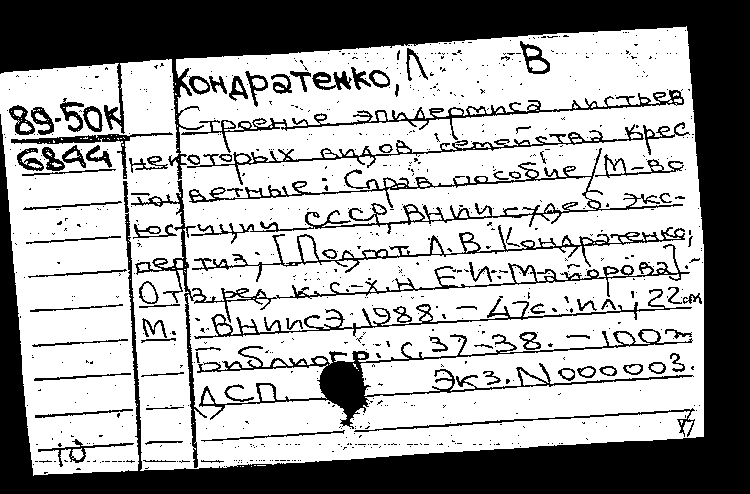 Кондратенко, Л. В
89-50К
6844
Строение эпидермиса листьев
некоторых видов семейства крес
тоцветные: Справ. пособие / М-во
юстиции СССР, ВНИИ судеб. экс-
пертиз; [Подгот. Л. В. Кондратенко;
Отв. ред. к. с.-х. н. Е. И. Майорова]. -
М. : ВНИИСЭ, 1988. - 47с. : ил.; 22см
Библиогр.: с. 37-38. - 100
ДСП. Экз. N 000003.
10